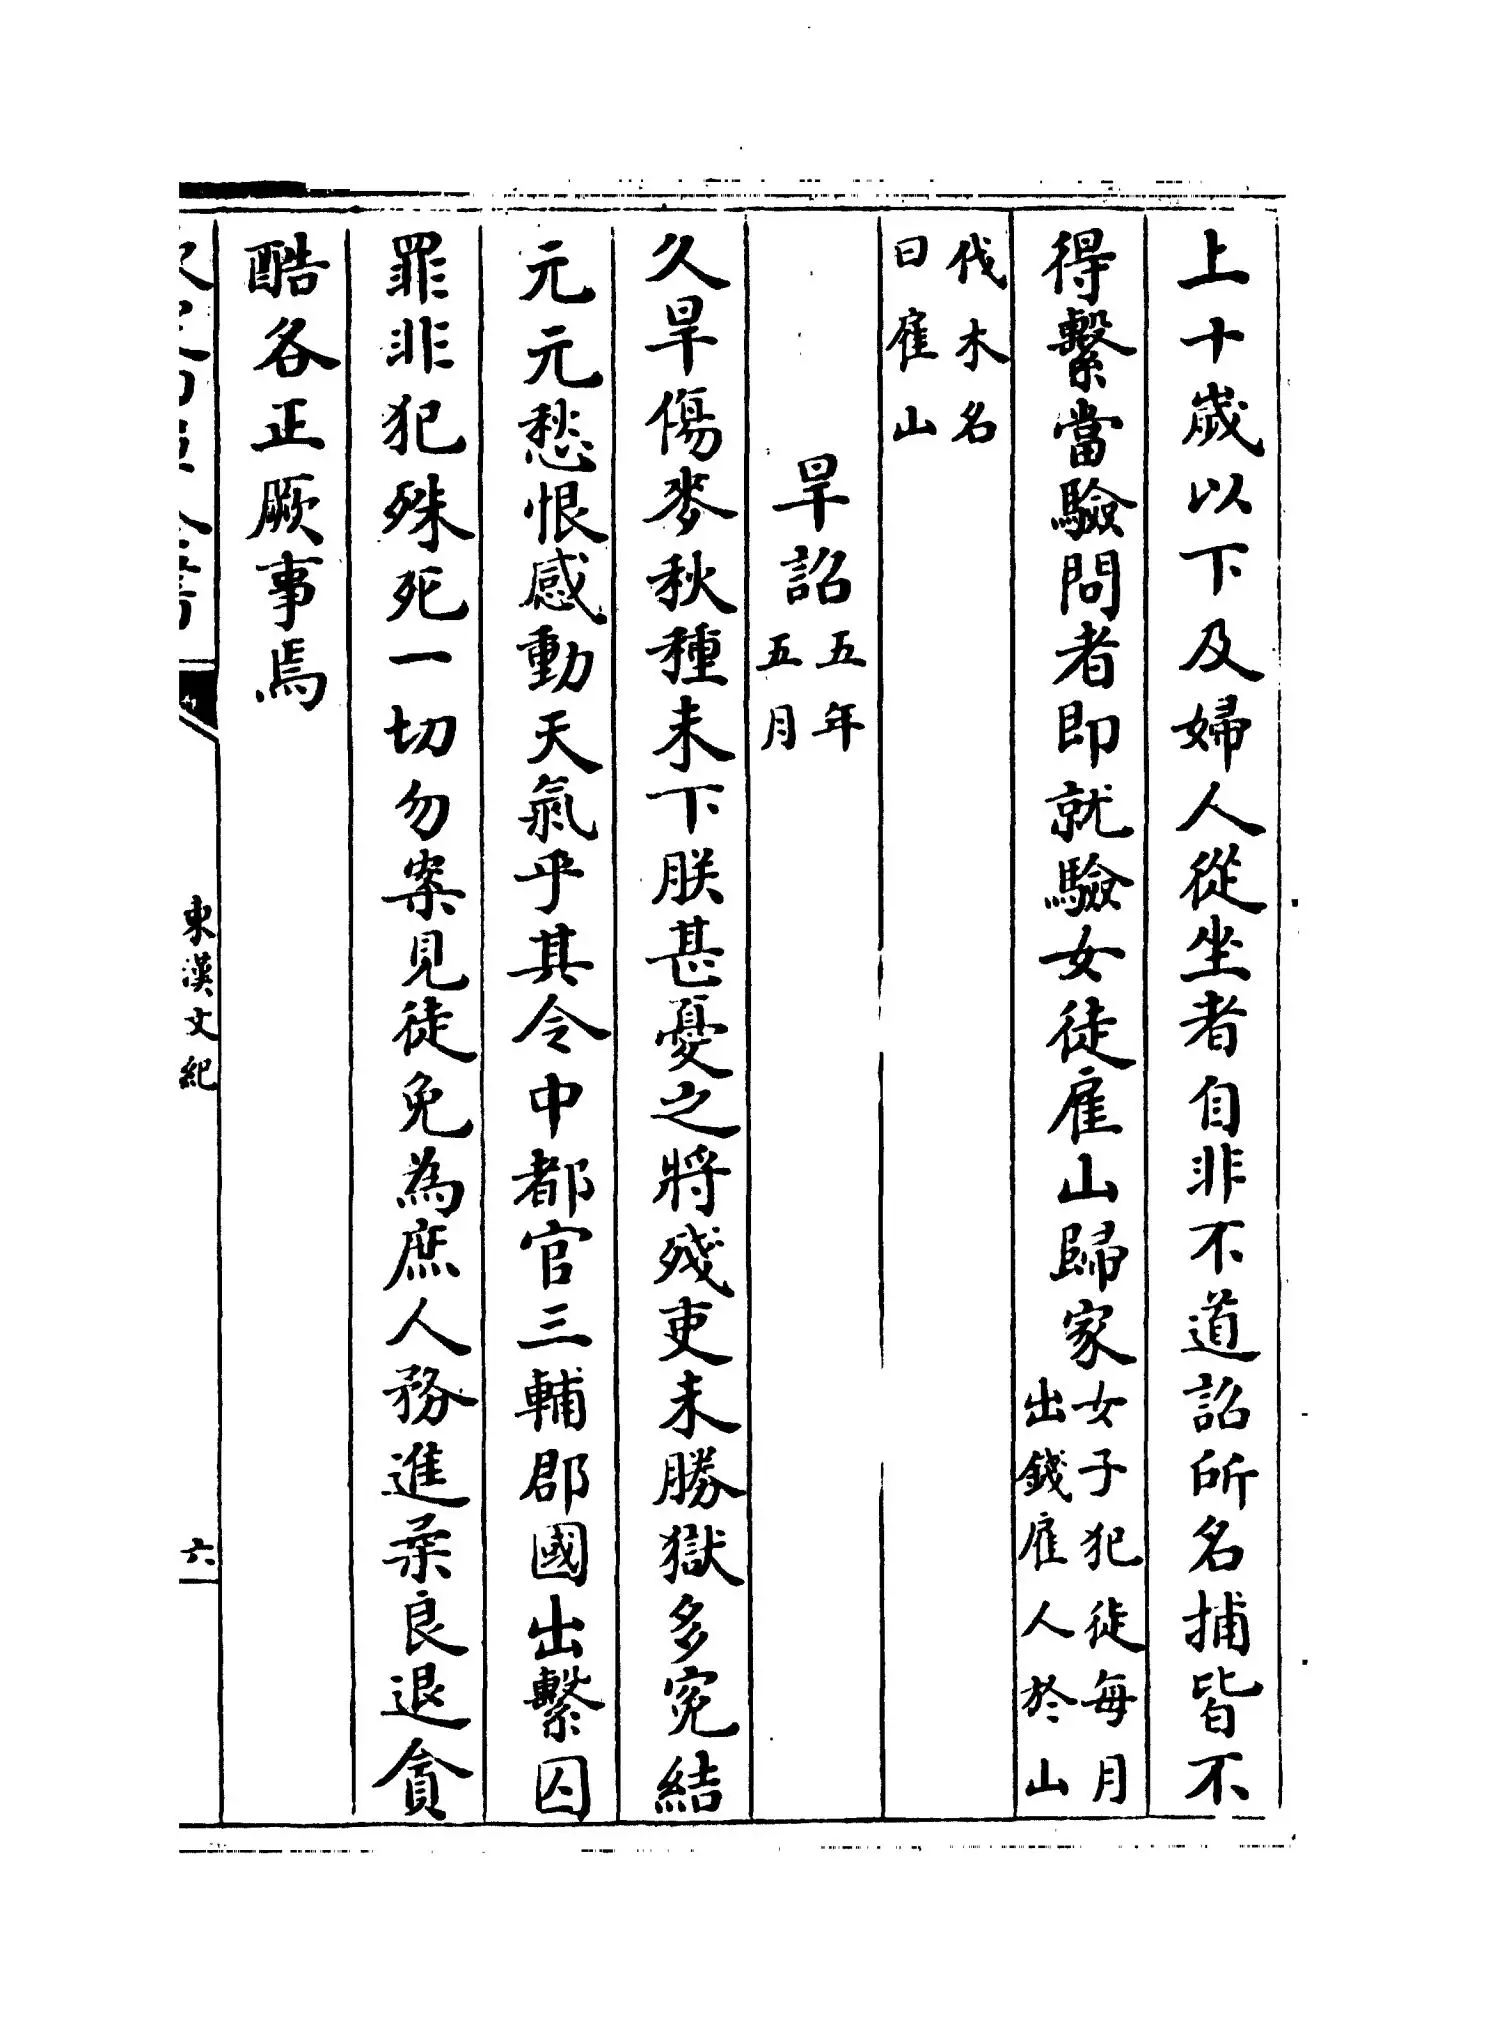 上十歲以下及婦人從坐者自非不道詔所名捕皆不
得繫當驗問者即就驗女徒雇山歸家女子犯徒每月
出錢雇人於山
伐木名
曰雇山
旱詔五年
五月
久旱傷麥秋種未下朕甚憂之將殘吏未勝獄多寃結
元元愁恨感動天氣乎其令中都官三輔郡國出繫囚
罪非犯殊死一切勿案見徒免為庶人務進柔良退貪
酷各正厥事焉
東漢文紀
六